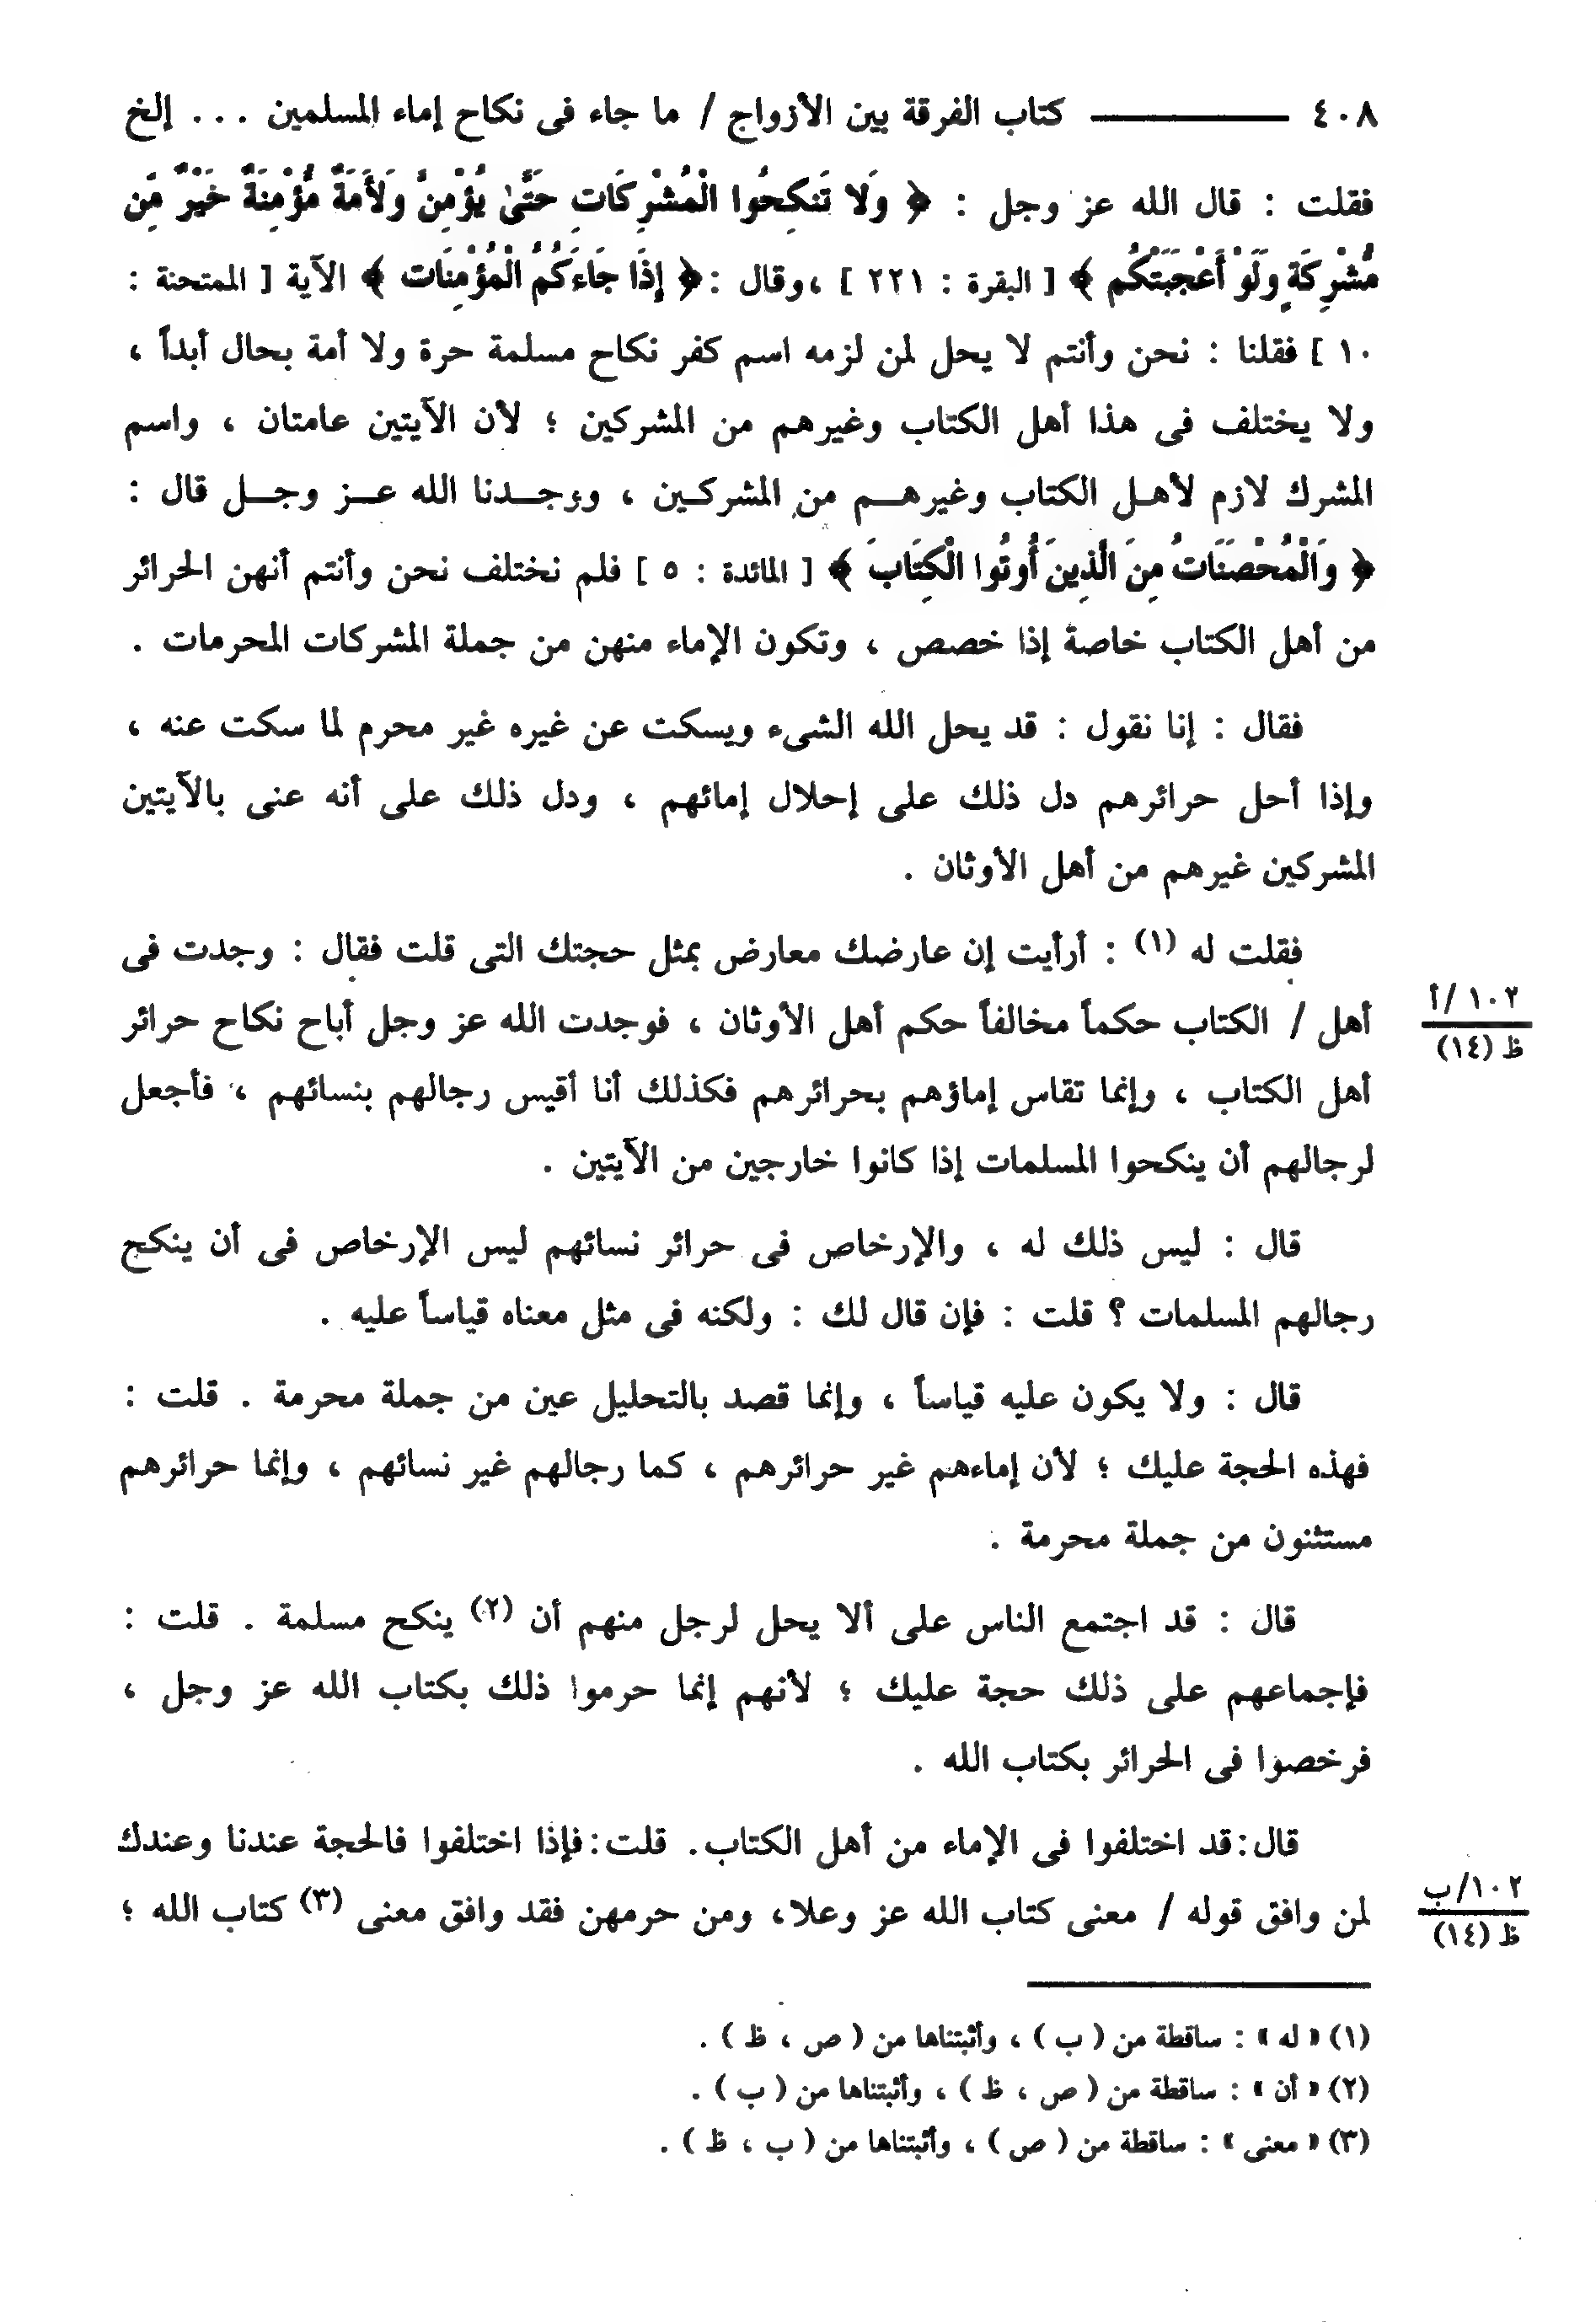 ٤٠٨ ــــــــــــ كتاب الفرقة بين الأزواج / ما جاء فى نكاح إماء المسلمين . . . إلخ
فقلت : قال الله عز وجل : ﴿ وَلا تَنكِحُوا الْمُشْرِكَاتِ حَتَّىٰ يُؤْمِنَّ وَلأَمَةٌ مُّؤْمِنَةٌ خَيْرٌ مِّن
مُّشْرِكَةٍ وَلَوْ أَعْجَبَتْكُم ﴾ [ البقرة : ٢٢١ ] ، وقال : ﴿ إِذَا جَاءَكُمُ الْمُؤْمِنَات ﴾ الآية [ الممتحنة :
١٠ ] فقلنا : نحن وأنتم لا يحل لمن لزمه اسم كفر نكاح مسلمة حرة ولا أمة بحال أبداً ،
ولا يختلف فى هذا أهل الكتاب وغيرهم من المشركين ؛ لأن الآيتين عامتان ، واسم
المشرك لازم لأهـل الكتاب وغيرهـــم من المشركـين ، ووجــدنا الله عــز وجــل قال :
﴿ وَالْمُحْصَنَاتُ مِنَ الَّذِينَ أُوتُوا الْكِتَابَ ﴾ [ المائدة : ٥ ] فلم نختلف نحن وأنتم أنهن الحرائر
من أهل الكتاب خاصة إذا خصص ، وتكون الإماء منهن من جملة المشركات المحرمات .
فقال : إنا نقول : قد يحل الله الشىء ويسكت عن غيره غير محرم لما سكت عنه ،
وإذا أحل حرائرهم دل ذلك على إحلال إمائهم ، ودل ذلك على أنه عنى بالآيتين
المشركين غيرهم من أهل الأوثان .
فقلت له (١) : أرأيت إن عارضك معارض بمثل حجتك التى قلت فقال : وجدت فى
أهل / الكتاب حكماً مخالفاً حكم أهل الأوثان ، فوجدت الله عز وجل أباح نكاح حرائر
١٠٢ /أ
ظ (١٤)
أهل الكتاب ، وإنما تقاس إماؤهم بحرائرهم فكذلك أنا أقيس رجالهم بنسائهم ، فأجعل
لرجالهم أن ينكحوا المسلمات إذا كانوا خارجين من الآيتين .
قال : ليس ذلك له ، والإرخاص فى حرائر نسائهم ليس الإرخاص فى أن ينكح
رجالهم المسلمات ؟ قلت : فإن قال لك : ولكنه فى مثل معناه قياساً عليه .
قال : ولا يكون عليه قياساً ، وإنما قصد بالتحليل عين من جملة محرمة . قلت :
فهذه الحجة عليك ؛ لأن إماءهم غير حرائرهم ، كما رجالهم غير نسائهم ، وإنما حرائرهم
مستثنون من جملة محرمة .
قال : قد اجتمع الناس على ألا يحل لرجل منهم أن (٢) ينكح مسلمة . قلت :
فإجماعهم على ذلك حجة عليك ؛ لأنهم إنما حرموا ذلك بكتاب الله عز وجل ،
فرخصوا فى الحرائر بكتاب الله .
قال : قد اختلفوا فى الإماء من أهل الكتاب . قلت : فإذا اختلفوا فالحجة عندنا وعندك
لمن وافق قوله / معنى كتاب الله عز وعلا ، ومن حرمهن فقد وافق معنى (٣) كتاب الله ؛
١٠٢/ب
ظ (١٤)
(١) « له » : ساقطة من ( ب ) ، وأثبتناها من ( ص ، ظ ) .
(٢) « أن » : ساقطة من ( ص ، ظ ) ، وأثبتناها من ( ب ) .
(٣) « معنى » : ساقطة من ( ص ) ، وأثبتناها من ( ب ، ظ ) .